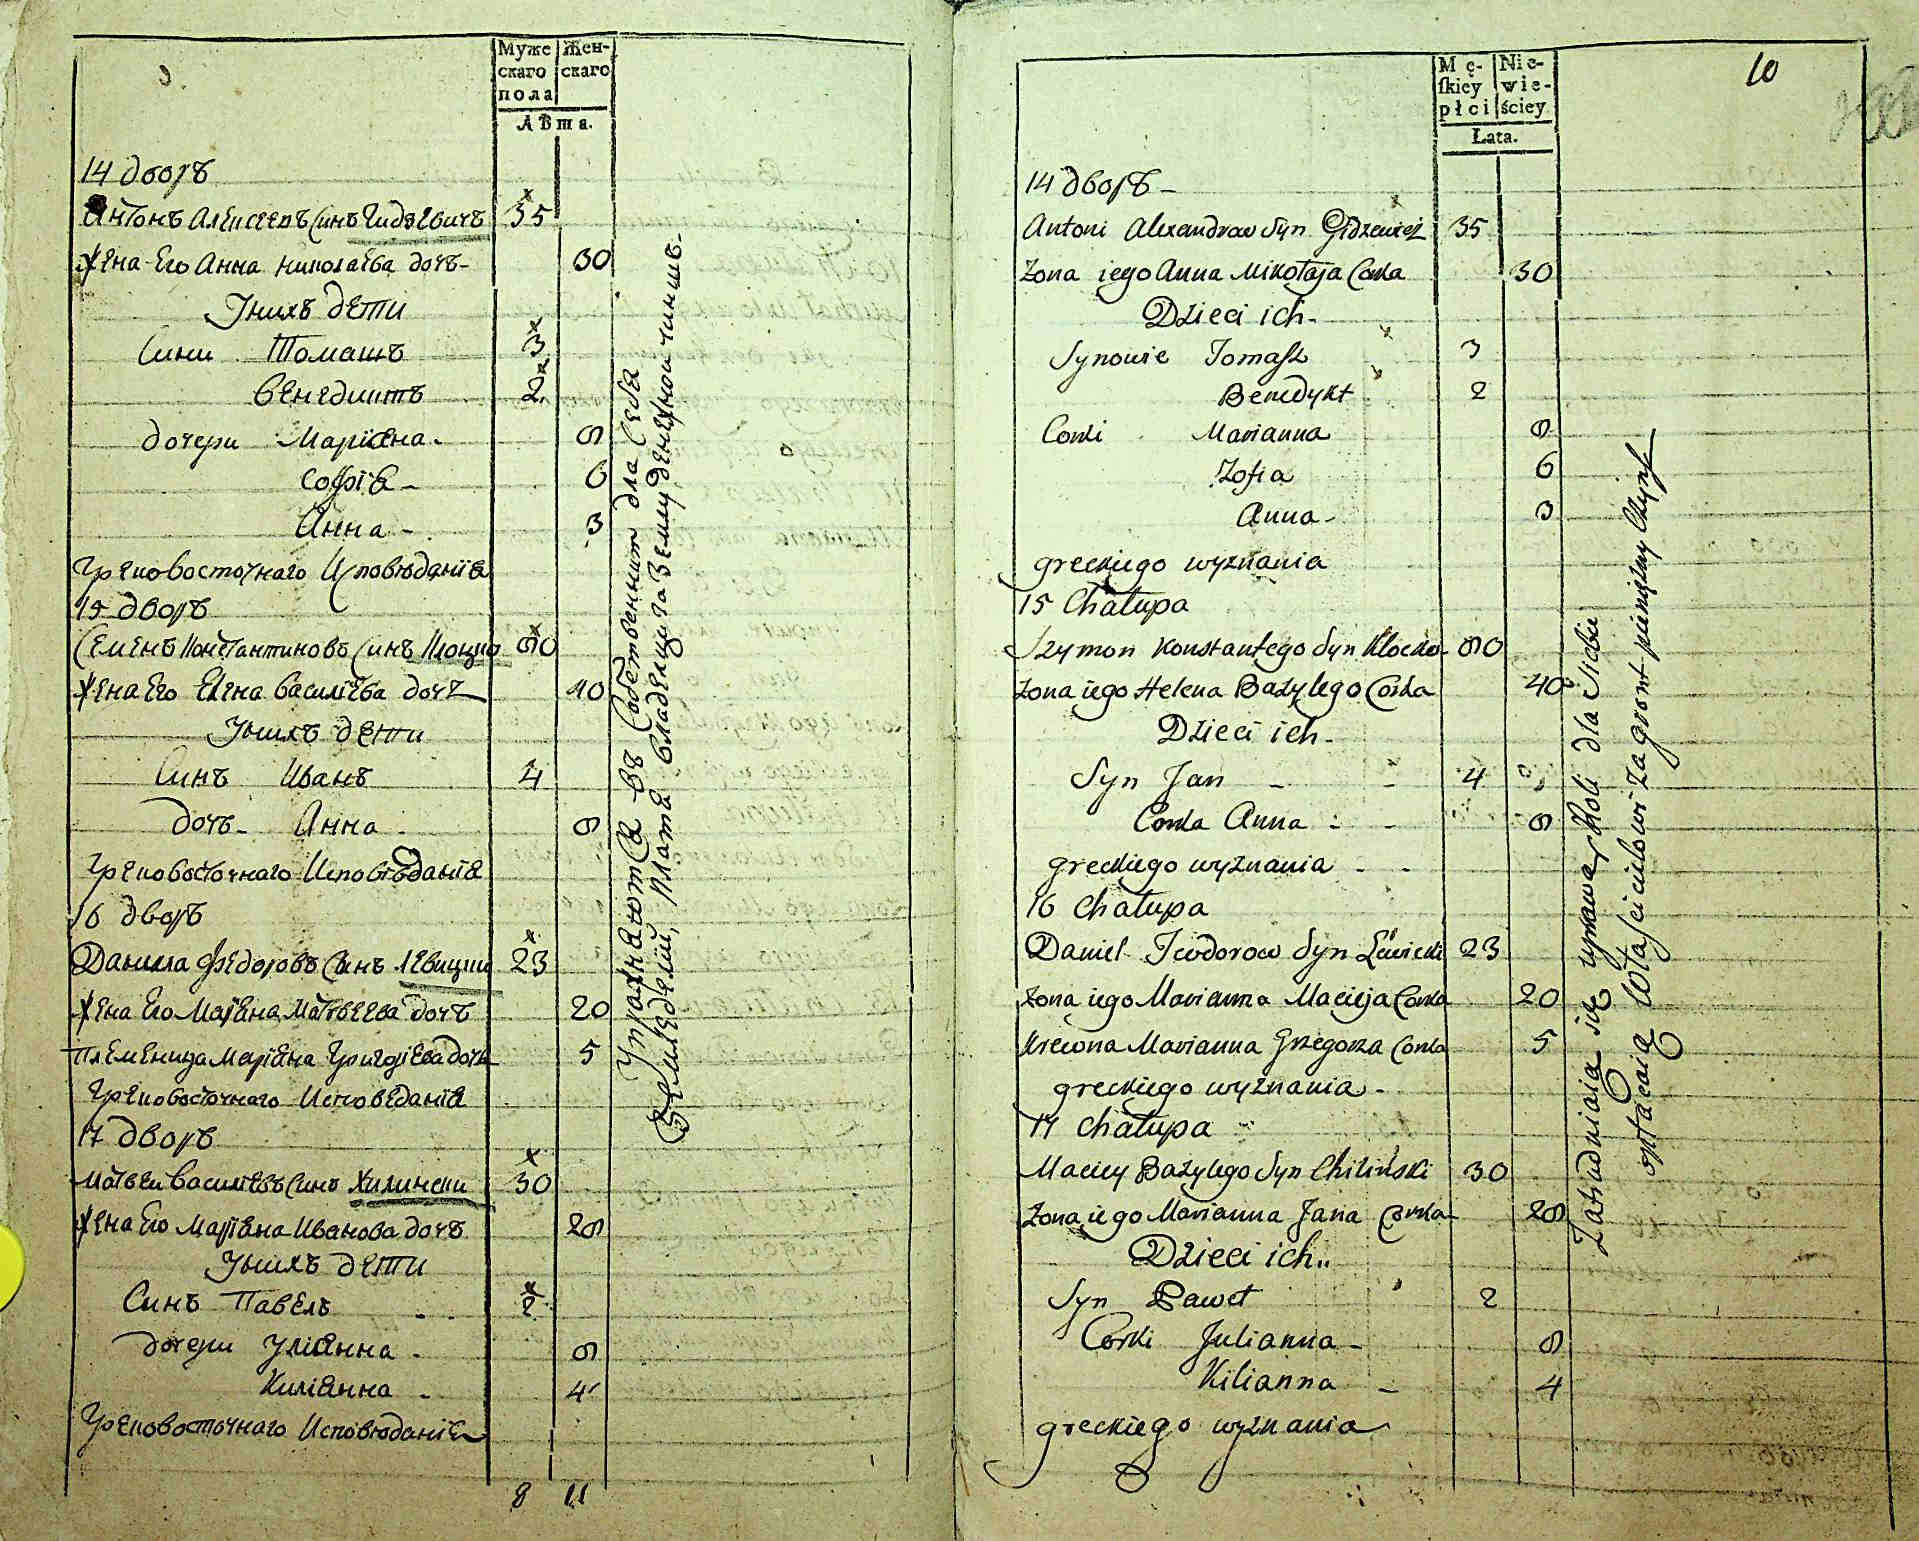 Муже
скаго
пола
Жен-
скаго
Лѣта.
14 дворъ
Антонъ Алексеевъ Синъ Гидзевичъ 35
Жена Его Анна Николаева дочъ- 30
Уныхъ дети
Сини Томашъ 3
Венедиктъ 2
дочери Маріяна. 9
Софія - 6
Анна - 3
Грековосточнаго Исповѣданія
15 дворъ
Семенъ Константиновъ Синъ Клоцко 90
Жена Его Елена Василіева дочъ 40
Уныхъ дети
Синъ Иванъ 4
дочъ- Анна 9
Грековосточнаго Исповѣданія
16 дворъ
Данила Федоровъ Синъ Левицки 23
Жена Его Маріяна Матвеева дочъ 20
Племеница Маріяна Григоріева дочъ 5
Грековосточнаго Исповеданія
17 дворъ
Матвеи Василіевъ Синъ Хилински 30
Жена Его Маріяна Иванова дочъ 29
Уныхъ дети
Синъ Павелъ 2
дочери Уліянна - 9
Киліянна - 4
Грековосточнаго Исповѣданія
8 11
Упражняются въ Собственнит для Себя
Земледелии, платя владелцу за Землу денежнои чиншъ-
10
Mę-
ſkiey
płci
Nie-
wie-
ściey
Lata.
14 дворъ -
Antoni Alexandrow Syn Gidzewicz 35
Zona iego Anna Mikołaja Corka 30
Dzieci ich-
Synowie Tomaſz 3
Benedykt 2
Corki Marianna 9
Zofia 6
Anna- 3
greckiego wyznania
15 Chałupa
Szymon Konstantego Syn Klocko- 90
Zona iego Helena Bazylego Corka 40
Dzieci ich-
Syn Jan - - 4
Corka Anna - - 9
greckiego wyznania - -
16 Chałupa
Daniel Teodorow Syn Lewicki 23
Zona iego Marianna Macieja Corka 20
Krewna Marianna Grzegorza Corka 5
greckiego wyznania -
17 Chałupa
Maciey Bazylego Syn Chiliński 30
Zona iego Marianna Jana Corka 29
Dzieci ich..
Syn Paweł 2
Corki Julianna - 9
Kilianna - 4
greckiego wyznania
Zatrudniaią się uprawą Roli dla Siebie
opłacaią Właścicielowi za gront pieniężny Czynſz